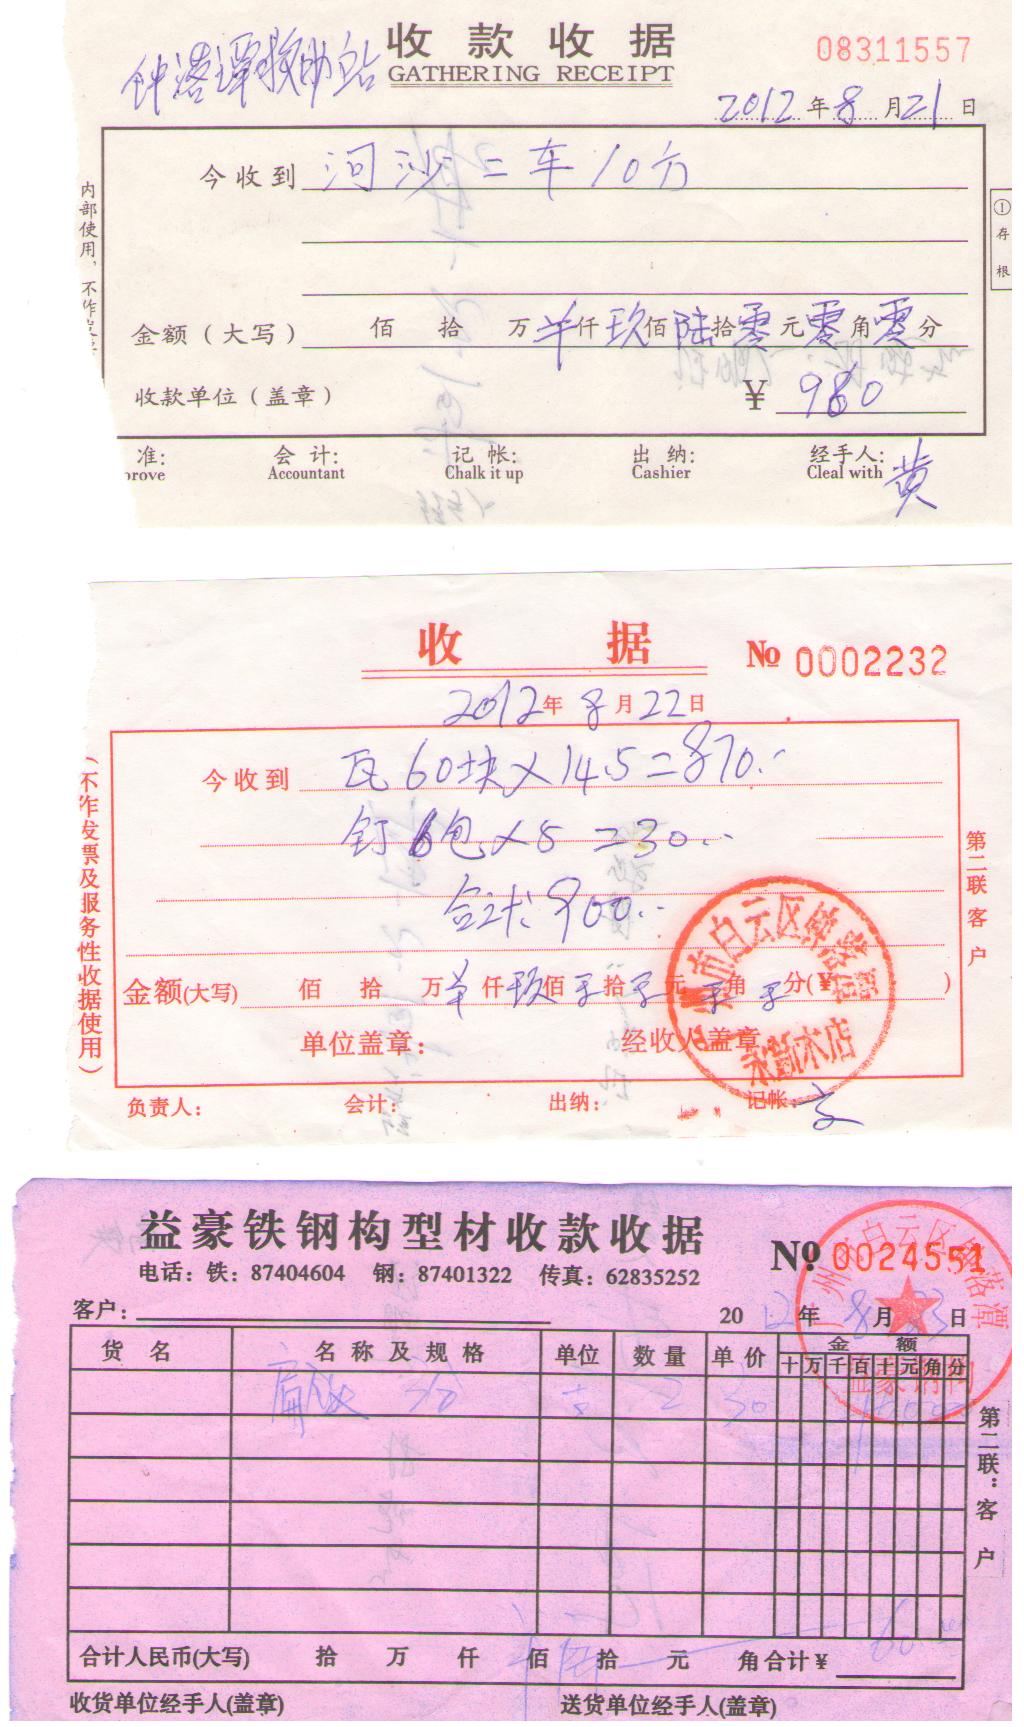 收款收据
GATHERING RECEIPT
08311557
钟落潭救助站
2012年8月21日
今收到 河沙二车10方
金额（大写） 佰 拾 万 仟玖佰陆拾零元零角零分
收款单位（盖章） ¥ 960
准: 会计: 记帐: 出纳: 经手人: 黄
prove Accountant Chalk it up Cashier Cleal with
内部使用，不作
①存根
收 据
№ 0002232
2012年8月22日
今收到 瓦60块×14.5=870.
钉6包×5=30.
合计900.
金额(大写) 佰 拾 万 仟玖佰 拾 元 角 分(¥ )
单位盖章: 经收人盖章:
负责人: 会计: 出纳: 记帐:
(不作发票及服务性收据使用)
第二联 客户
市白云区钟落潭
木店
益豪铁钢构型材收款收据
№ 0024551
电话: 铁: 87404604 钢: 87401322 传真: 62835252
客户:
2012年8月23日
货名 名称及规格 单位 数量 单价 金额
十万千百十元角分
2 30
合计人民币(大写) 拾 万 仟 佰 拾 元 角 合计¥ 60
收货单位经手人(盖章) 送货单位经手人(盖章)
第二联: 客户
广州 白云区钟落潭
益豪钢构